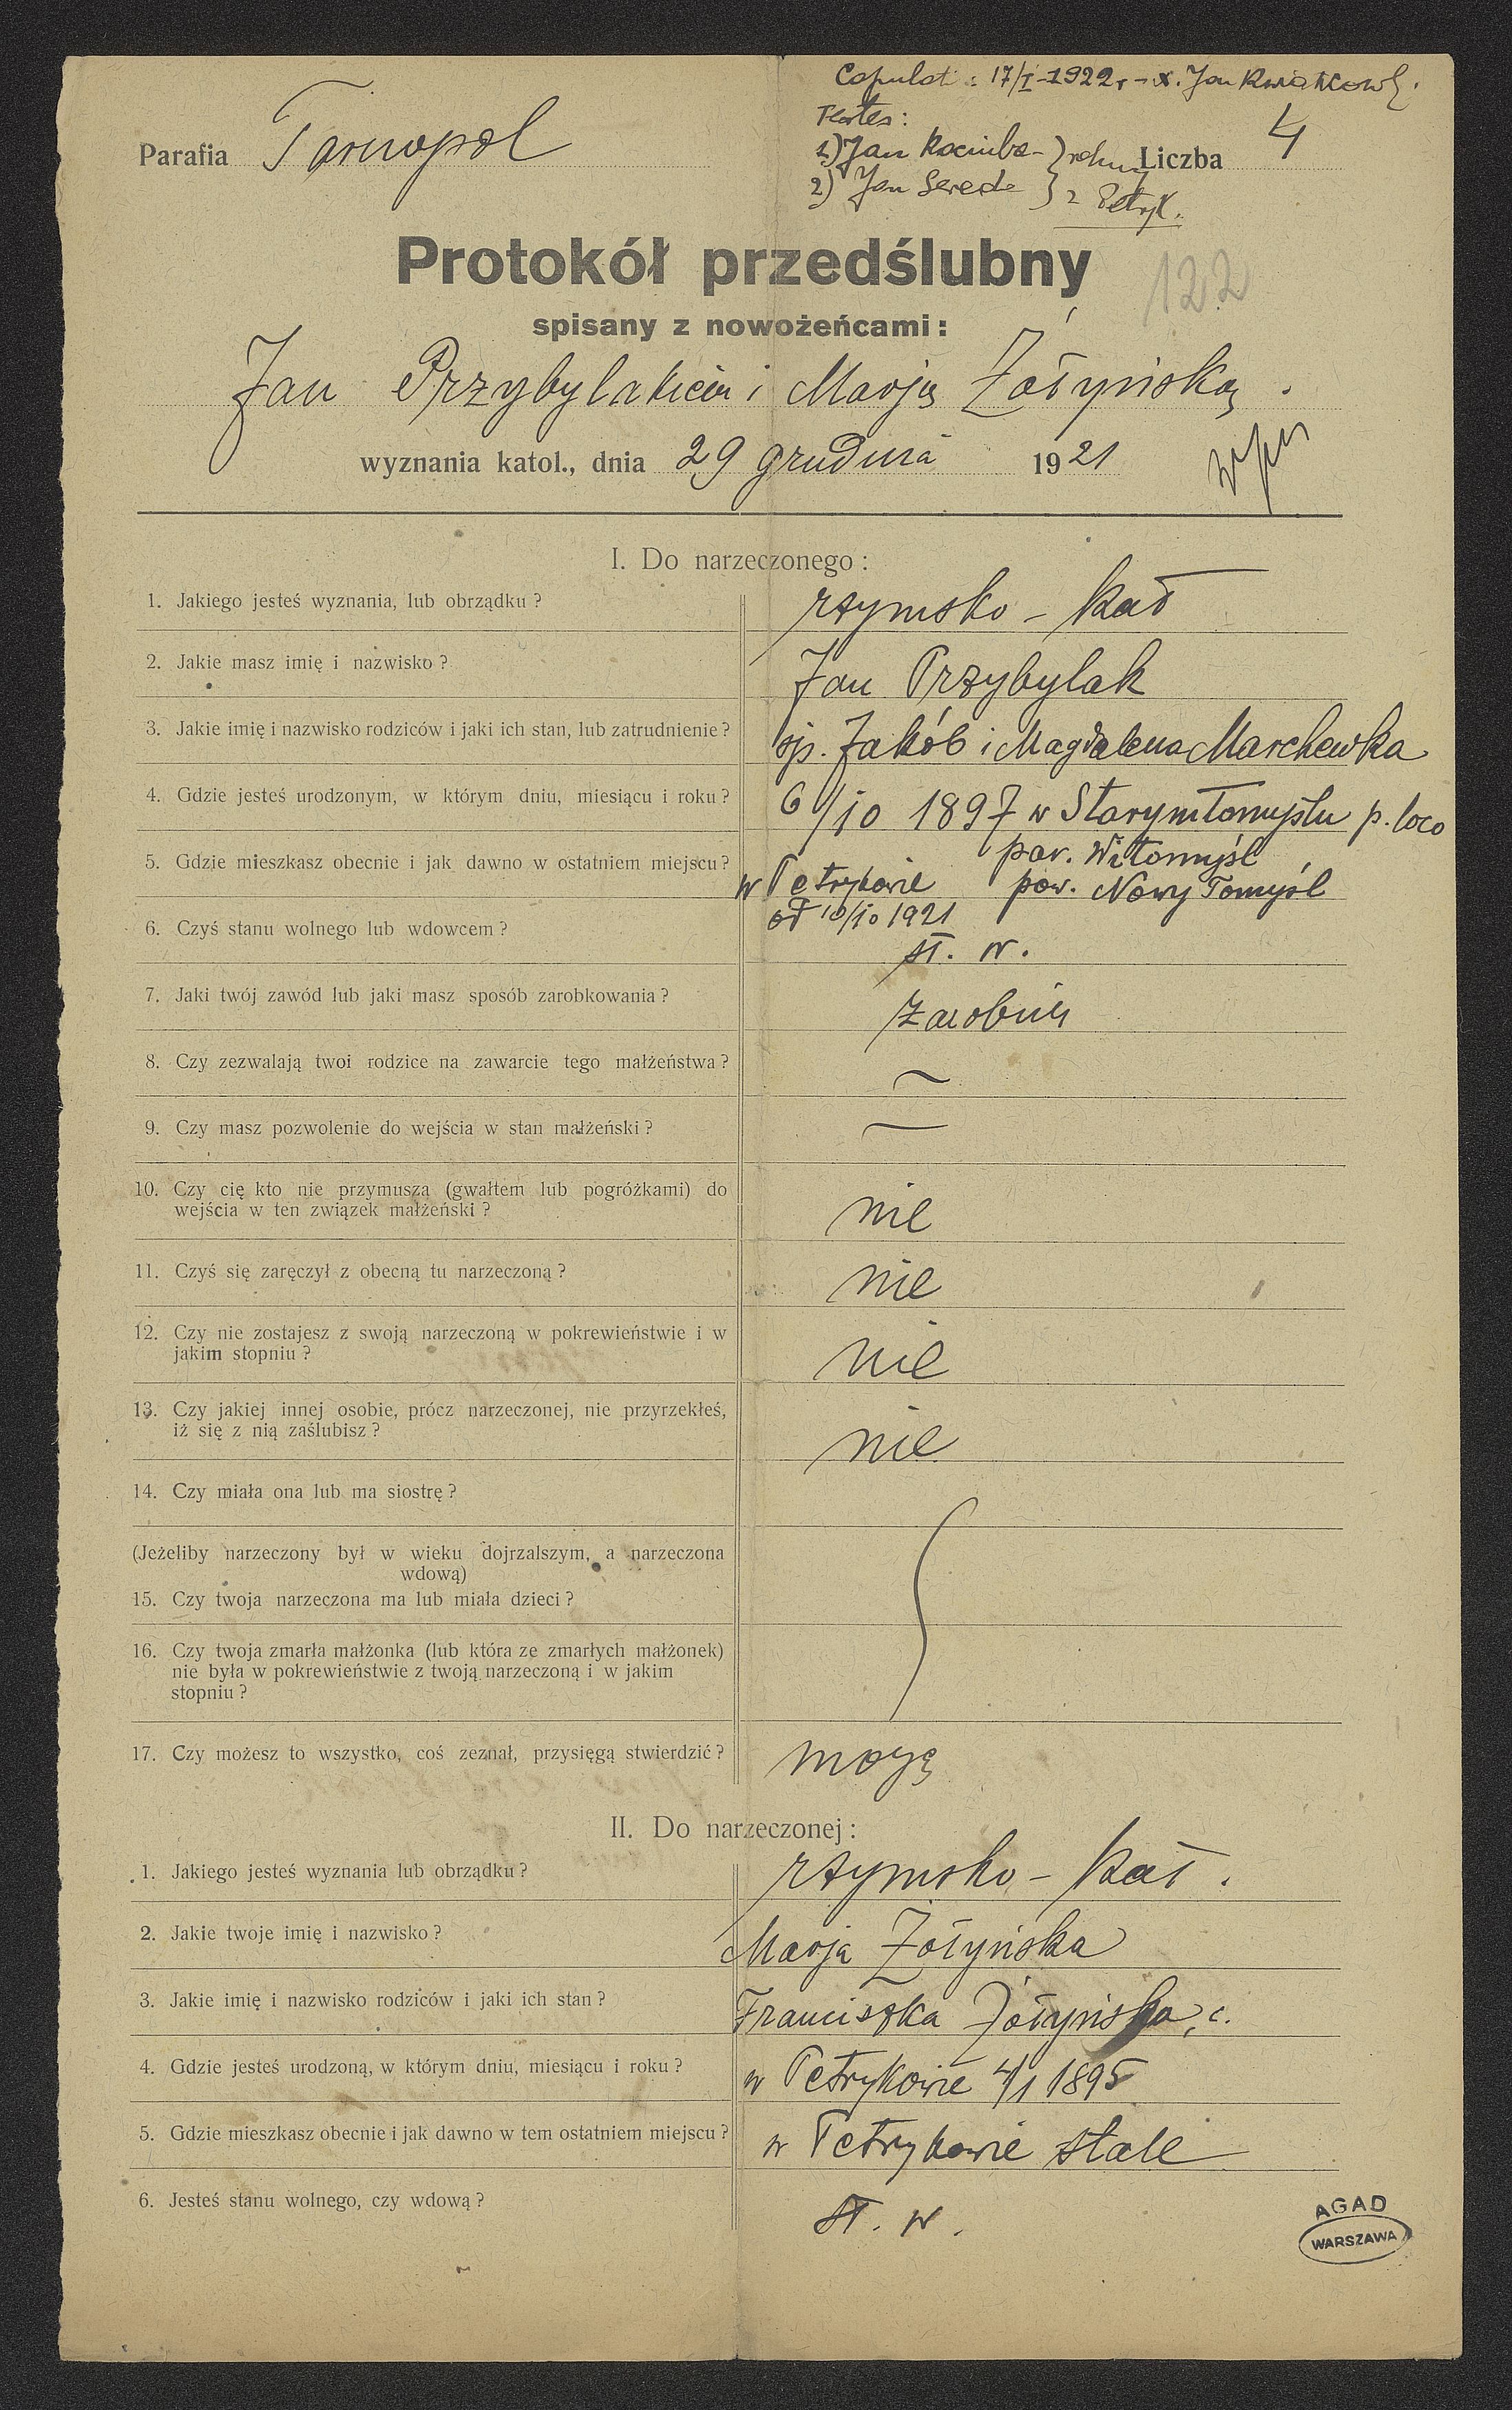 Copulat: 17/I-1922 r. - X. Jan Kwiatkowski.
Testes:
Parafia Tarnopol
1) Jan Kociuba -
Liczba 4
2) Jan Sereda
z Petryk.
Protokół przedślubny
122
spisany z nowożeńcami:
Jan Przybylakiem i Marją Żółyńską.
wyznania katol., dnia 29 grudnia 1921
I. Do narzeczonego:
1. Jakiego jesteś wyznania, lub obrządku? rzymsko-kat
2. Jakie masz imię i nazwisko? Jan Przybylak
3. Jakie imię i nazwisko rodziców i jaki ich stan, lub zatrudnienie? śp. Jakób i Magdalena Marchewka
4. Gdzie jesteś urodzonym, w którym dniu, miesiącu i roku? 6/10 1897 w Starymtomyślu p. loco
par. Witomyśl
5. Gdzie mieszkasz obecnie i jak dawno w ostatniem miejscu? w Petrykowie pow. Nowy Tomyśl
od 10/10 1921
6. Czyś stanu wolnego lub wdowcem? st. w.
7. Jaki twój zawód lub jaki masz sposób zarobkowania? zarobnik
8. Czy zezwalają twoi rodzice na zawarcie tego małżeństwa? —
9. Czy masz pozwolenie do wejścia w stan małżeński? —
10. Czy cię kto nie przymusza (gwałtem lub pogróżkami) do
wejścia w ten związek małżeński? nie
11. Czyś się zaręczył z obecną tu narzeczoną? nie
12. Czy nie zostajesz z swoją narzeczoną w pokrewieństwie i w
jakim stopniu? nie
13. Czy jakiej innej osobie, prócz narzeczonej, nie przyrzekłeś,
iż się z nią zaślubisz? nie
14. Czy miała ona lub ma siostrę?
(Jeżeliby narzeczony był w wieku dojrzalszym, a narzeczona
wdową)
15. Czy twoja narzeczona ma lub miała dzieci?
16. Czy twoja zmarła małżonka (lub która ze zmarłych małżonek)
nie była w pokrewieństwie z twoją narzeczoną i w jakim
stopniu?
17. Czy możesz to wszystko, coś zeznał, przysięgą stwierdzić? mogę
II. Do narzeczonej:
1. Jakiego jesteś wyznania lub obrządku? rzymsko-kat.
2. Jakie twoje imię i nazwisko? Marja Żółyńska
3. Jakie imię i nazwisko rodziców i jaki ich stan? Franciszka Żółyńska, c.
4. Gdzie jesteś urodzoną, w którym dniu, miesiącu i roku? w Petrykowie 4/1 1895
5. Gdzie mieszkasz obecnie i jak dawno w tem ostatniem miejscu? w Petrykowie stale
6. Jesteś stanu wolnego, czy wdową? st. w.
AGAD
WARSZAWA